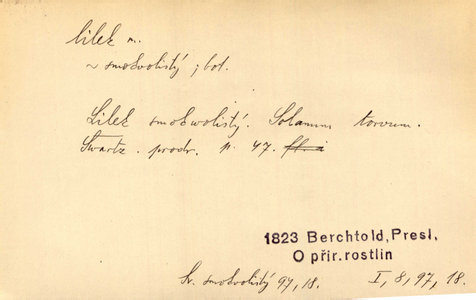 lilek m.
~ smokvolistý ; bot.
Lilek smokwolistý. Solanum torvum.
Swartz. prodr. p. 47.
1823 Berchtold, Presl,
O přir. rostlin
Sv. smokvolistý 97, 18. I, 8, 97, 18.